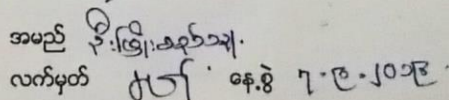 အမည် ဦးဖြိုး
လက်မှတ် နေ့စွဲ ၇.၉.၂၀၁၉